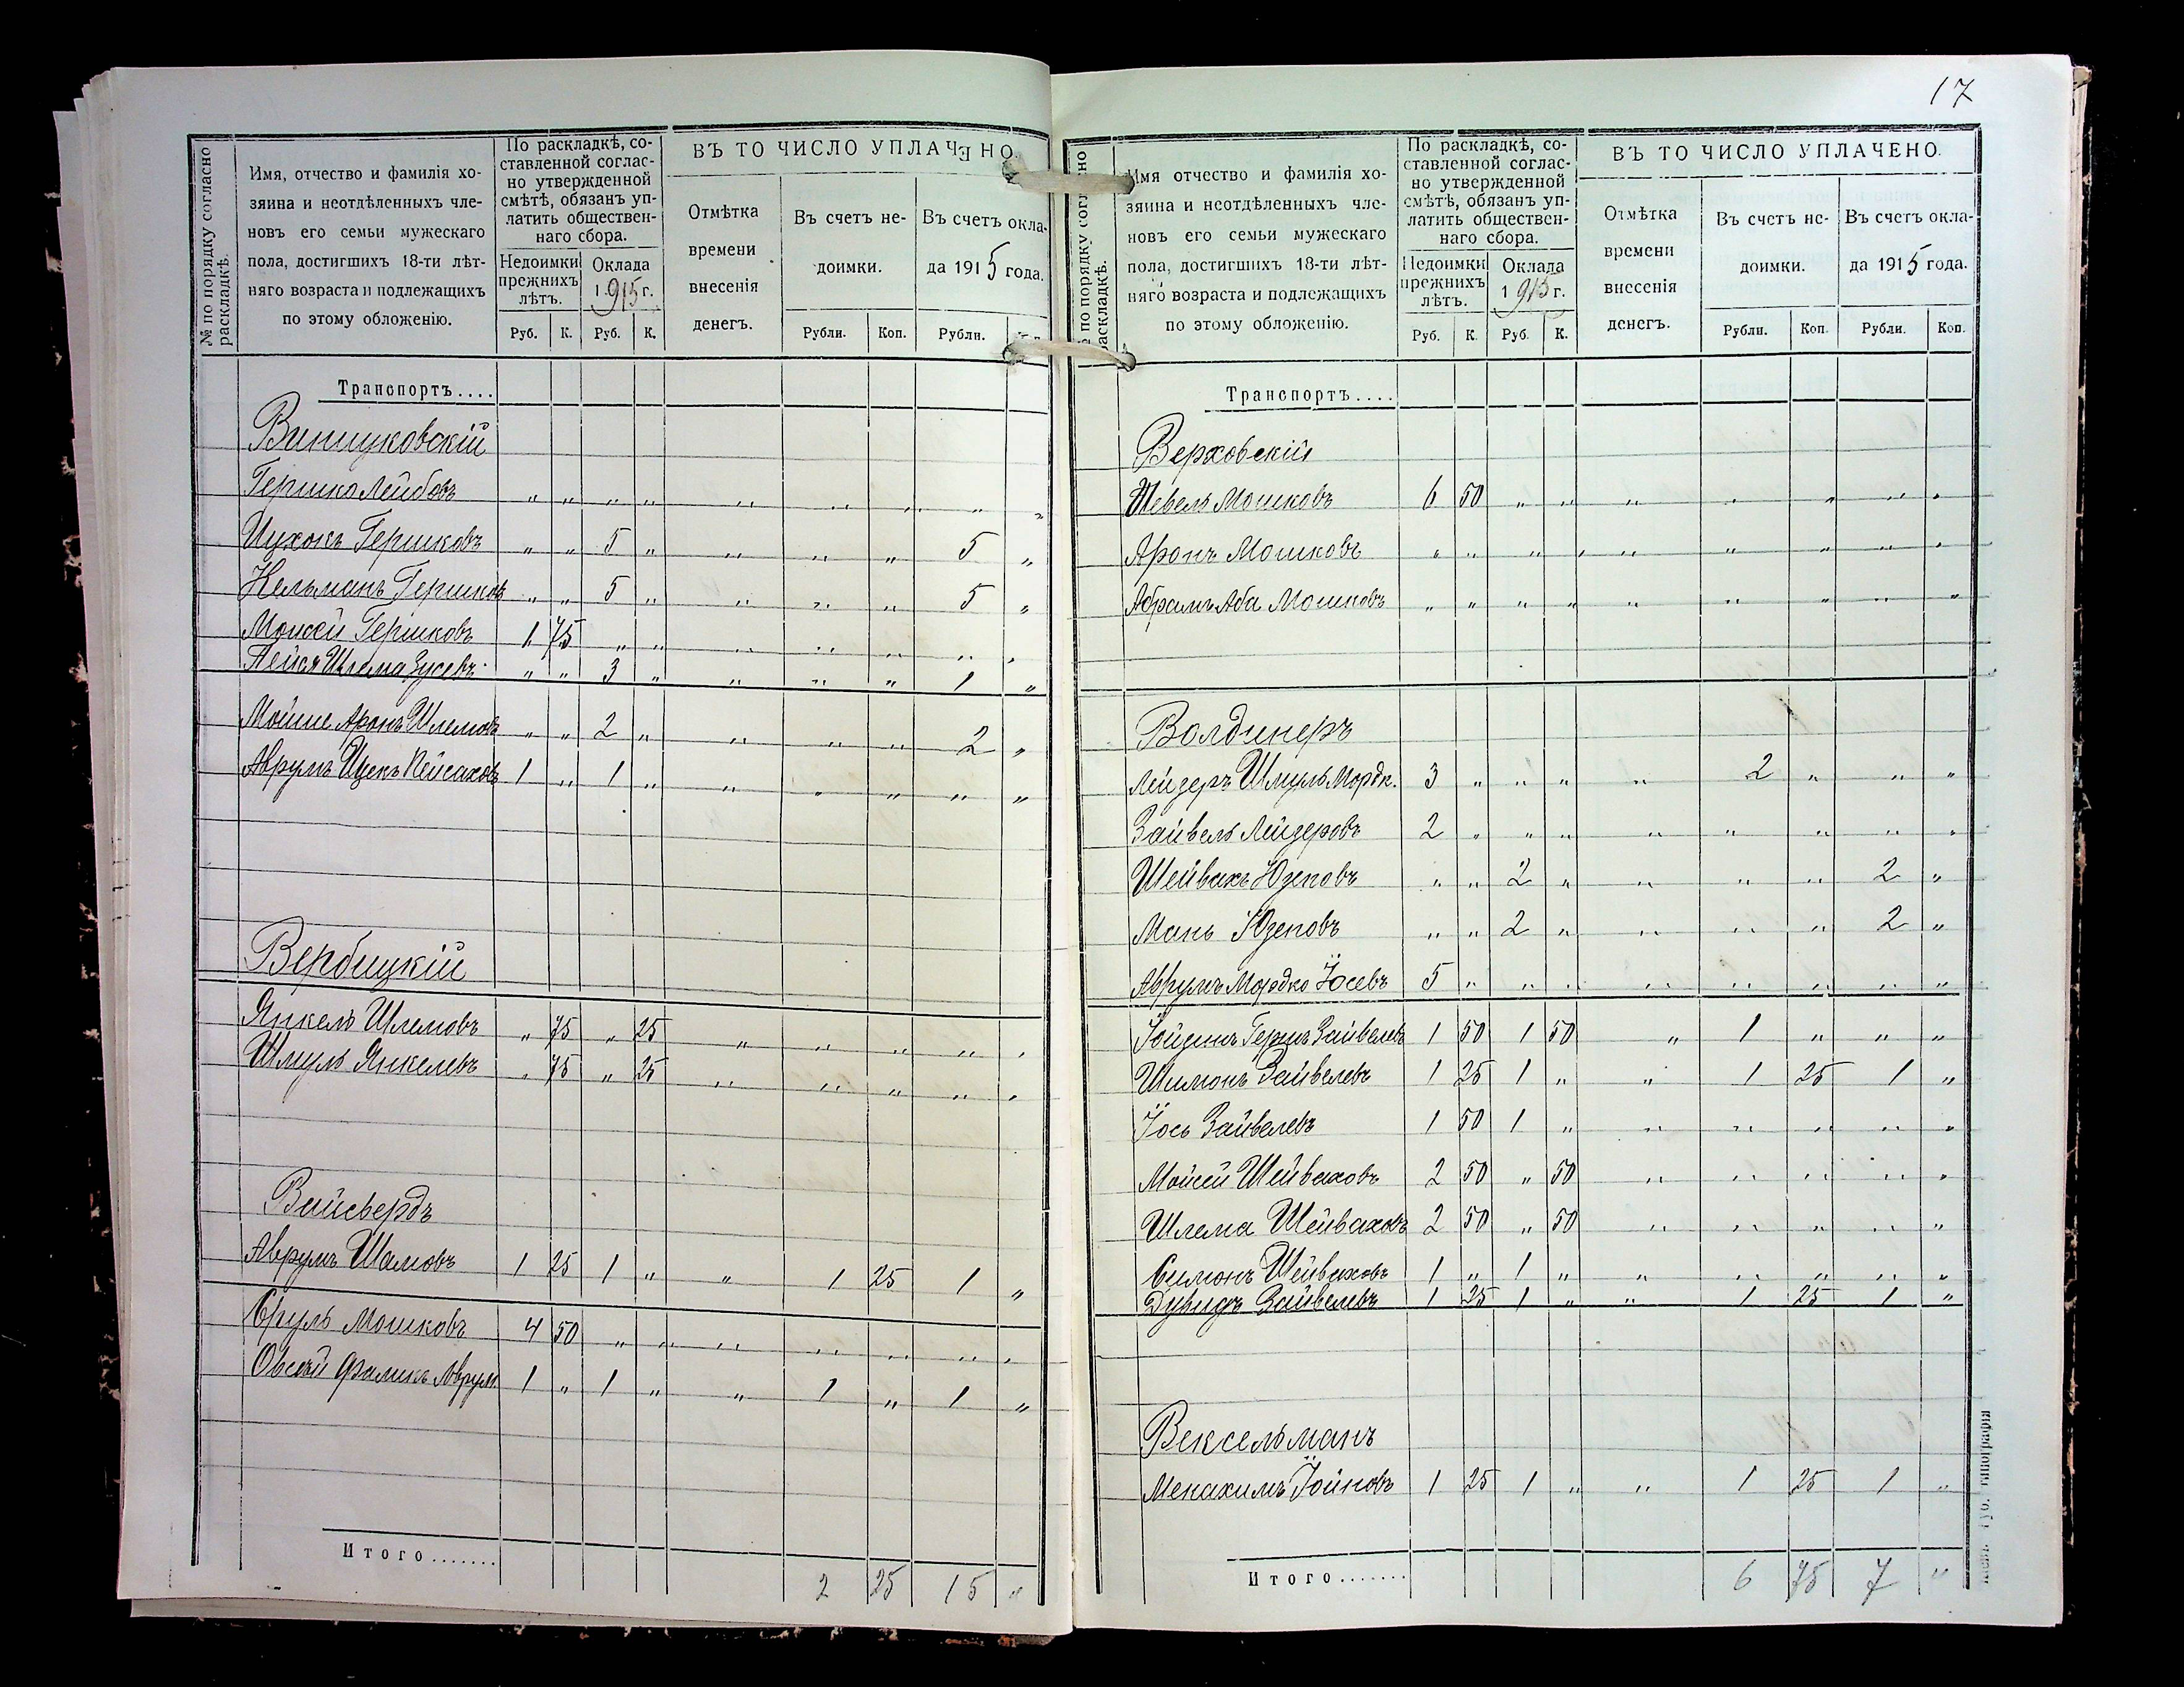 № по порядку согласно раскладкѣ.
Имя, отчество и фамилія хо-
зяина и неотдѣленныхъ чле-
новъ его семьи мужескаго
пола, достигшихъ 18-ти лѣт-
няго возраста и подлежащихъ
по этому обложенію.
По раскладкѣ, со-
ставленной соглас-
но утвержденной
смѣтѣ, обязанъ уп-
латить обществен-
наго сбора.
Недоимки прежнихъ лѣтъ.
Оклада 1915 г.
Руб. К. Руб. К.
ВЪ ТО ЧИСЛО УПЛАЧЕНО
Отмѣтка времени внесенія денегъ.
Въ счетъ не-
доимки.
Въ счетъ окла-
да 1915 года.
Рубли. Коп. Рубли.
Транспортъ....
Винницковскій
Гершко Лейбовъ " " " " " " " " "
Ицхокъ Гершковъ " " 5 " " " " 5 "
Кельманъ Гершковъ " " 5 " " " " 5 "
Мойсей Гершковъ 1 75 " " " " " " "
Пейся Шлема Зусевъ " " 3 " " " " 1 "
Мойше Аронъ Шлемовъ " " 2 " " " " 2 "
Аврумъ Ицекъ Пейсаховъ 1 " 1 " " " " " "
Вербицкій
Янкель Шлемовъ " 75 " 25 " " " " "
Шмуль Янкелевъ " 75 " 25 " " " " "
Вайсбердъ
Аврумъ Шамовъ 1 25 1 " " 1 25 1 "
Сруль Мошковъ 4 50 " " " " " " "
Овсей Фаликъ Аврум. 1 " 1 " " 1 " 1 "
Итого....... 2 25 15 "
17
№ по порядку согласно раскладкѣ.
Имя отчество и фамилія хо-
зяина и неотдѣленныхъ чле-
новъ его семьи мужескаго
пола, достигшихъ 18-ти лѣт-
няго возраста и подлежащихъ
по этому обложенію.
По раскладкѣ, со-
ставленной соглас-
но утвержденной
смѣтѣ, обязанъ уп-
латить обществен-
наго сбора.
Недоимки прежнихъ лѣтъ.
Оклада 1915 г.
Руб. К. Руб. К.
ВЪ ТО ЧИСЛО УПЛАЧЕНО.
Отмѣтка времени внесенія денегъ.
Въ счетъ не-
доимки.
Въ счетъ окла-
да 1915 года.
Рубли. Коп. Рубли. Коп.
Транспортъ....
Верховскій
Шевель Мошковъ 6 50 " " " " " " "
Аронъ Мошковъ " " " " " " " " "
Абрамъ Аба Мошковъ " " " " " " " " "
Волдинеръ
Лейзеръ Шмуль Мордк. 3 " " " " 2 " " "
Зайвель Лейзеровъ 2 " " " " " " " "
Шейвахъ Юзеповъ " " 2 " " " " 2 "
Мань Юзеповъ " " 2 " " " " 2 "
Аврумъ Мордко Іосевъ 5 " " " " " " " "
Іойдинъ Гершъ Зайвелевъ 1 50 1 50 " 1 " " "
Шимонъ Зайвелевъ 1 25 1 " " 1 25 1 "
Іось Зайвелевъ 1 50 1 " " " " " "
Мойсей Шейваховъ 2 50 " 50 " " " " "
Шлема Шейваховъ 2 50 " 50 " " " " "
Симонъ Шейваховъ 1 " 1 " " " " " "
Дувидъ Зайвелевъ 1 25 1 " " 1 25 1 "
Вексельманъ
Менахимъ Іойновъ 1 25 1 " " 1 25 1 "
Итого....... 6 75 7 "
Губ. типографія